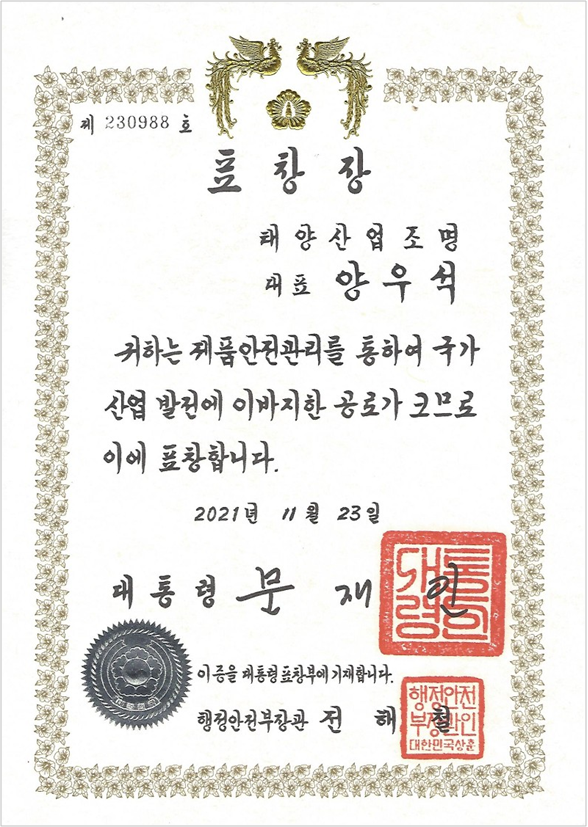 제 230988 호
표 창 장
태양산업조명
대표 양우석
귀하는 제품안전관리를 통하여 국가
산업 발전에 이바지한 공로가 크므로
이에 표창합니다.
2021년 11월 23일
대통령 문재인
이 증을 대통령 표창부에 기재합니다.
행정안전부장관 전해철